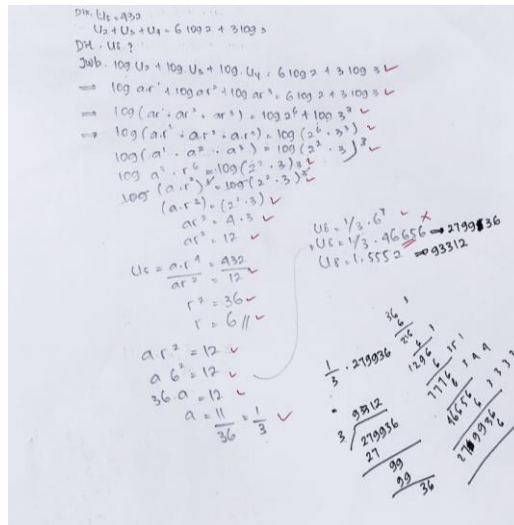 Dik. U5 = 432
U2 + U3 + U4 = 6 log 2 + 3 log 3
Dit. U8 ?
Jwb. log U2 + log. U3 + log. U4 = 6 log 2 + 3 log 3 ✓
⇒ log ar¹ + log ar² + log ar³ = 6 log 2 + 3 log 3 ✓
⇒ log (ar¹ . ar² . ar³) = log 2⁶ + log 3³ ✓
⇒ log (a.r¹ . a.r² . a.r³) = log (2⁶ . 3³) ✓
log (a¹ . a² . a³) = log (2² . 3)³ ✓
log a³ . r⁶ = log (2² . 3)³ ✓
log (a.r²)³ = log (2² . 3)³ ✓
(a.r²) = (2² . 3) ✓
ar² = 4.3 ✓
ar² = 12 ✓
U5 = a.r⁴ = 432
ar² 12 ✓
r² = 36 ✓
r = 6 // ✓
ar² = 12 ✓
a 6² = 12 ✓
36.a = 12 ✓
a = 11 = 1 ✓
36 3
U8 = 1/3 . 6⁷ ✓
U8 = 1/3 . 46656 ✗ → 279936
U8 = 1.5552 → 93312
1/3 . 279936
93312
3 279936
27
99
99
36
36
6
216
6
1296
6
7776
6
46656
6
279936
6